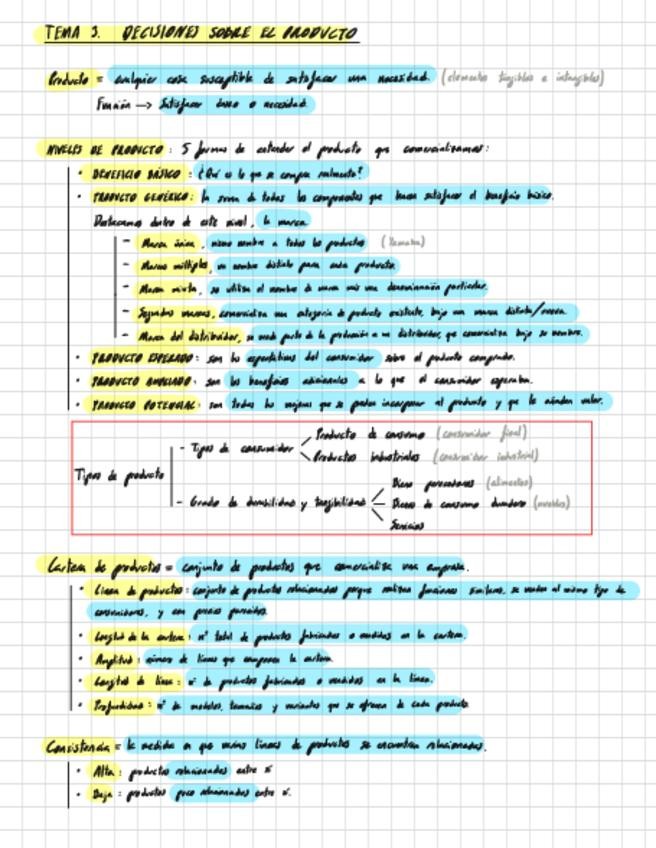 TEMA 3. DECISIONES SOBRE EL PRODUCTO
Producto = cualquier cosa susceptible de satisfacer una necesidad. (elementos tangibles e intangibles)
Función → Satisfacer deseo o necesidad.
NIVELES DE PRODUCTO: 5 formas de entender el producto que comercializamos:
• BENEFICIO BÁSICO: ¿Qué es lo que se compra realmente?
• PRODUCTO GENÉRICO: la suma de todos los componentes que hacen satisfacer el beneficio básico.
Destacamos dentro de este nivel, la marca
- Marca única, mismo nombre a todos los productos (Yamaha)
- Marcas múltiples, un nombre distinto para cada producto.
- Marca mixta, se utiliza el nombre de marca más una denominación particular.
- Segundas marcas, comercializa una categoría de producto existente, bajo una marca distinta/nueva.
- Marca del distribuidor, se vende parte de la producción a un distribuidor, que comercializa bajo su nombre.
• PRODUCTO ESPERADO: son las expectativas del consumidor sobre el producto comprado.
• PRODUCTO AMPLIADO: son los beneficios adicionales a lo que el consumidor esperaba.
• PRODUCTO POTENCIAL: son todas las mejoras que se pueden incorporar al producto y que le añaden valor.
Tipos de producto
- Tipos de consumidor
Producto de consumo (consumidor final)
Productos industriales (consumidor industrial)
- Grado de durabilidad y tangibilidad
Bienes perecederos (alimentos)
Bienes de consumo duradero (muebles)
Servicios
Cartera de productos = conjunto de productos que comercializa una empresa.
• Línea de productos: conjunto de productos relacionados porque realizan funciones similares, se venden al mismo tipo de
consumidores, y con precios parecidos.
• Longitud de la cartera: nº total de productos fabricados o vendidos en la cartera.
• Amplitud: número de líneas que componen la cartera.
• Longitud de línea: nº de productos fabricados o vendidos en la línea.
• Profundidad: nº de modelos, tamaños y variantes que se ofrecen de cada producto.
Consistencia = la medida en que varias líneas de productos se encuentran relacionadas.
• Alta: productos relacionados entre sí.
• Baja: productos poco relacionados entre sí.